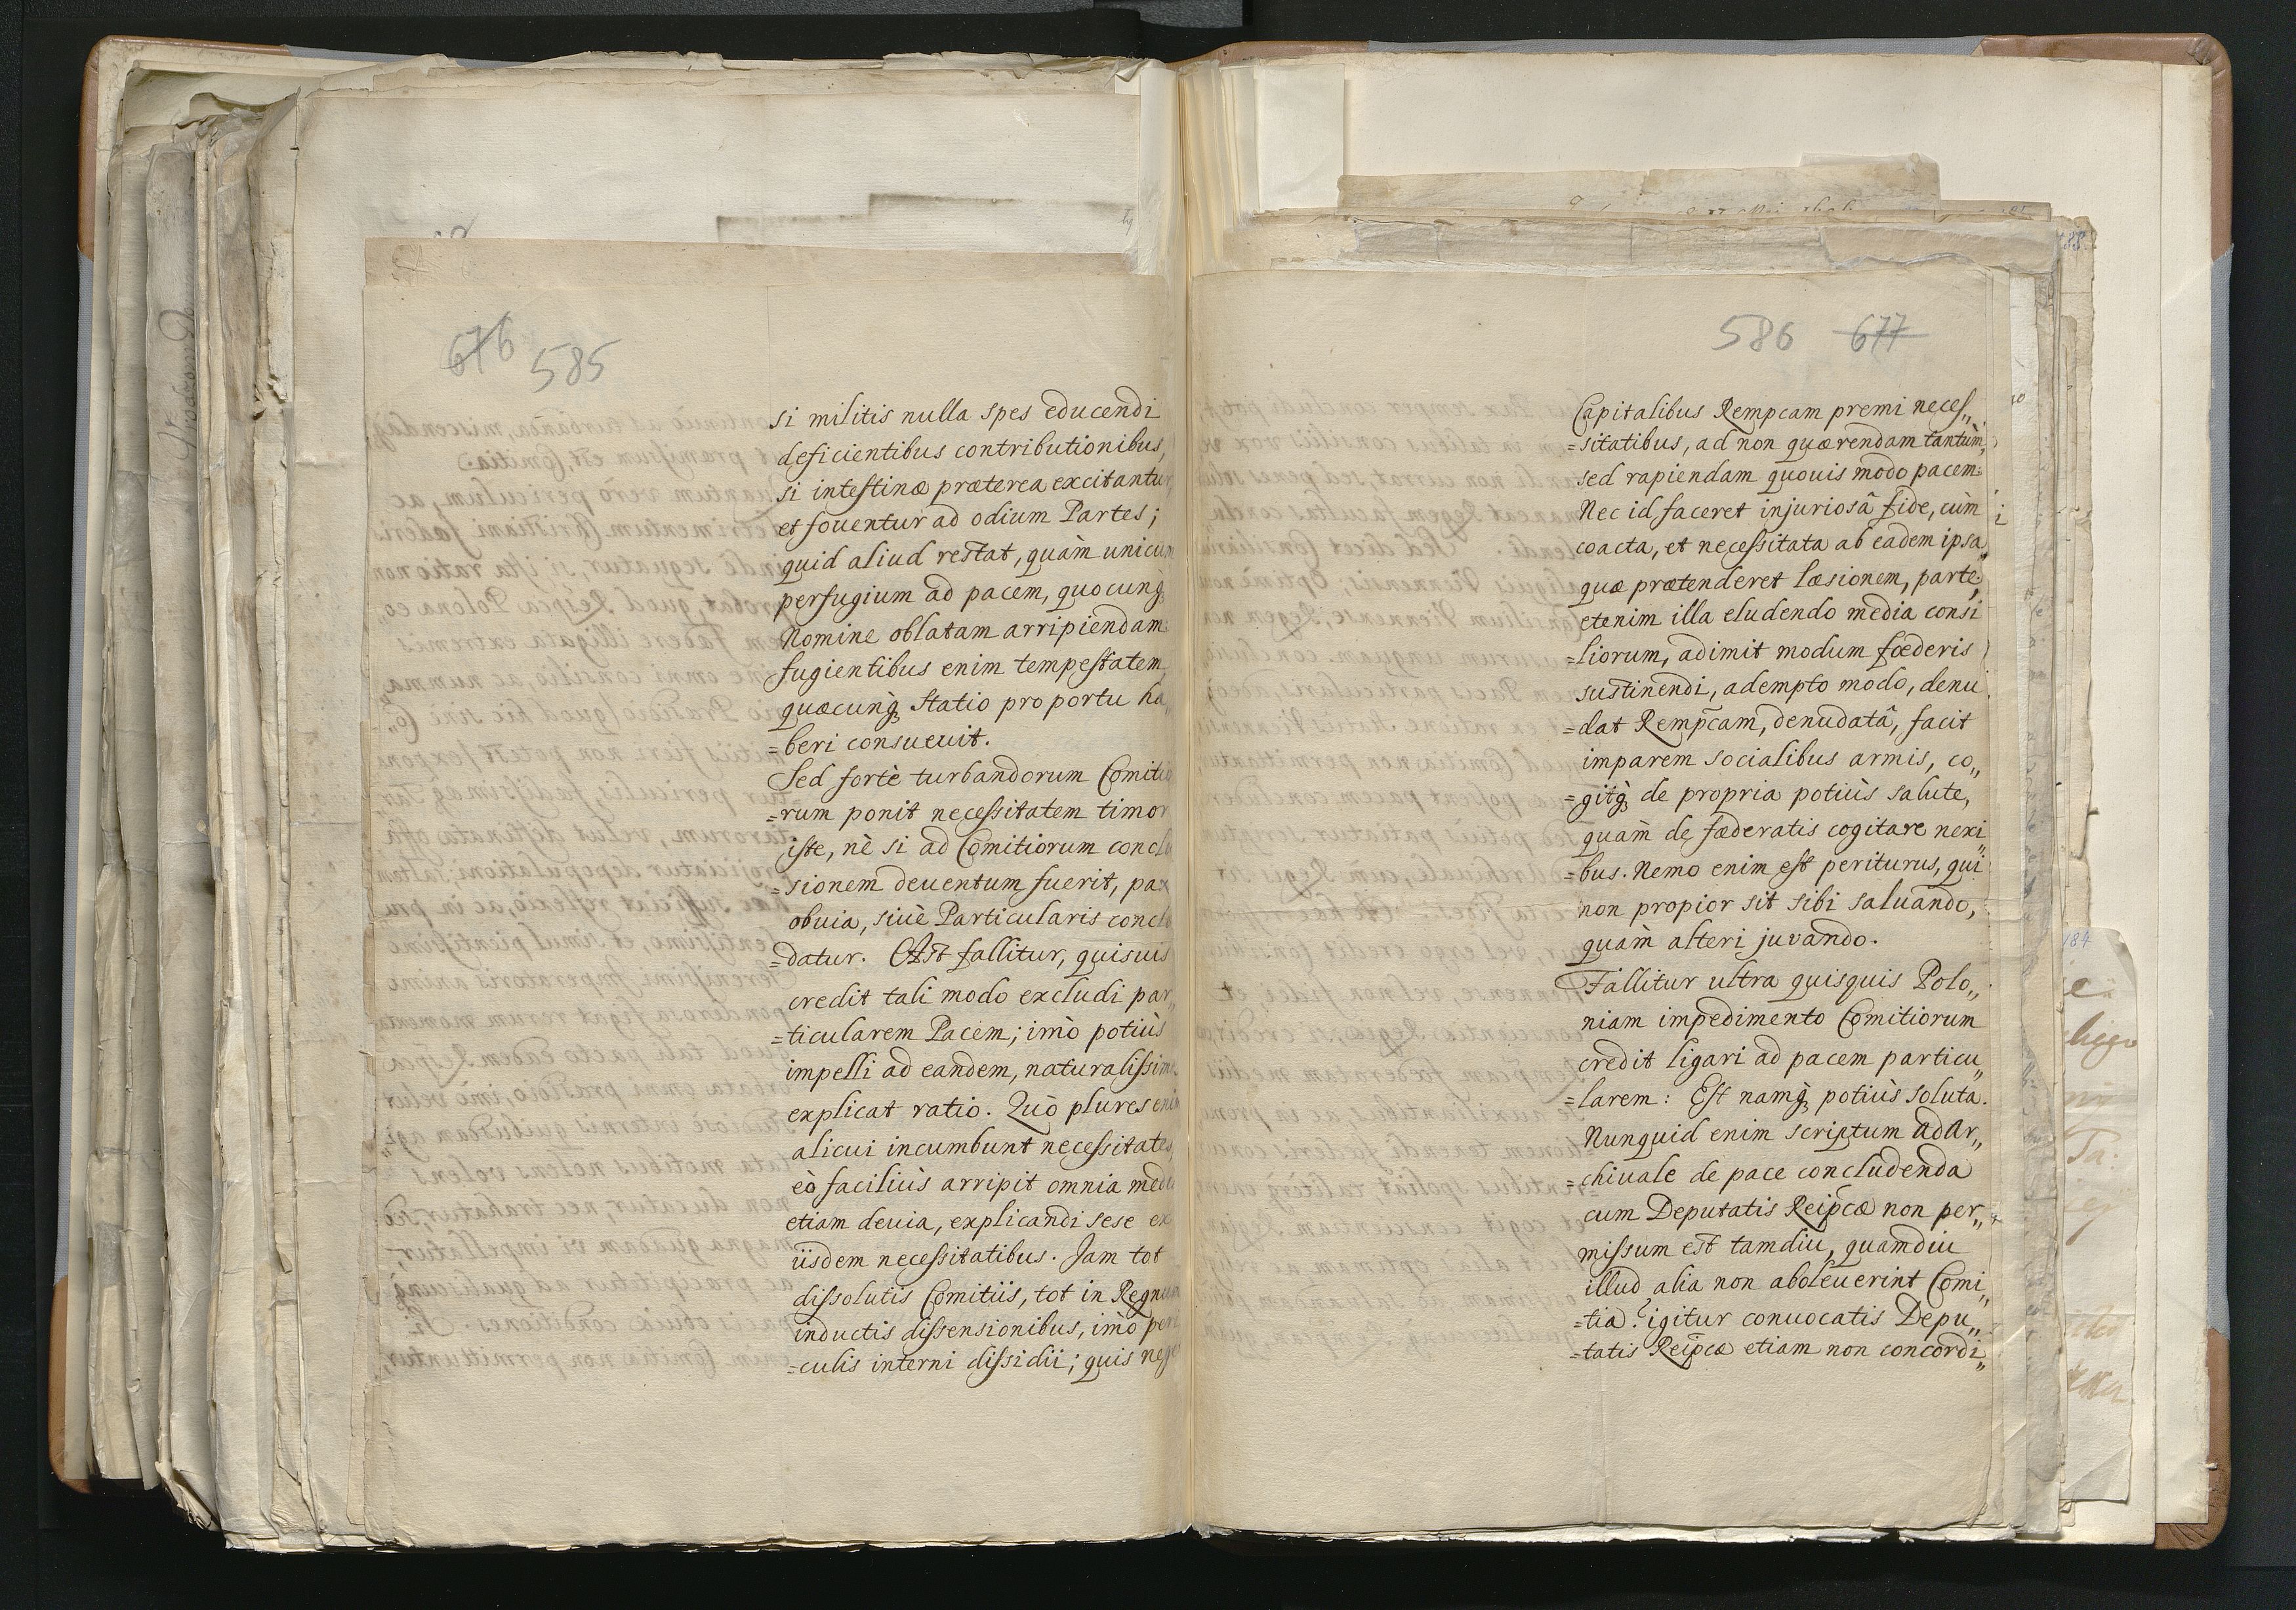 676 585
si militis nulla spes educendi
deficientibus contributionibus,
si intestinæ præterea excitantur,
et fouentur ad odium Partes;
quid aliud restat, quàm unicum
perfugium ad pacem, quocunq́;
Nomine oblatam arripiendam:
fugientibus enim tempestatem,
quæcunq́; statio pro portu ha„
=beri consueuit.
Sed fortè turbandorum Comitio
=rum ponit necessitatem timor
iste, nè si ad Comitiorum conclu
=sionem deuentum fuerit, pax
obuia, siuè Particularis conclu
=datur. Ast fallitur, quisuis
credit tali modo excludi par„
=ticularem Pacem; imò potiùs
impelli ad eandem, naturalissima
explicat ratio. Quò plures enim
alicui incumbunt necessitates,
eò faciliùs arripit omnia media
etiam deuia, explicandi sese ex
iisdem necessitatibus. Jam tot
dissolutis Comitiis, tot in Regnum
inductis dissensionibus, imò peri
=culis interni dissidii; quis neget
586 677
Capitalibus Rempcam premi neces„
=sitatibus, ad non quærendam tantùm,
sed rapiendam quouis modo pacem:
Nec id faceret injuriosâ fide, cùm
coacta, et necessitata ab eadem ipsa,
quæ prætenderet læsionem, parte;
etenim illa eludendo media consi
=liorum, adimit modum fœderis
sustinendi, adempto modo, denu
=dat Rempcam, denudatâ, facit
imparem socialibus armis, co„
=gitq́; de propria potiùs salute,
quàm de fœderatis cogitare nexi
=bus. Nemo enim est periturus, qui
non propior sit sibi saluando,
quàm alteri juvando.
Fallitur ultra quisquis Polo„
niam impedimento Comitiorum
credit ligari ad pacem particu„
=larem: Est namq́; potiùs soluta.
Nunquid enim scriptum ad Ar„
=chiuale de pace concludenda
cum Deputatis Reipcæ non per„
missum est tamdiu, quamdiu
illud alia non aboleuerint Comi„
=tia? igitur conuocatis Depu„
=tatis Reipcæ etiam non concordi„